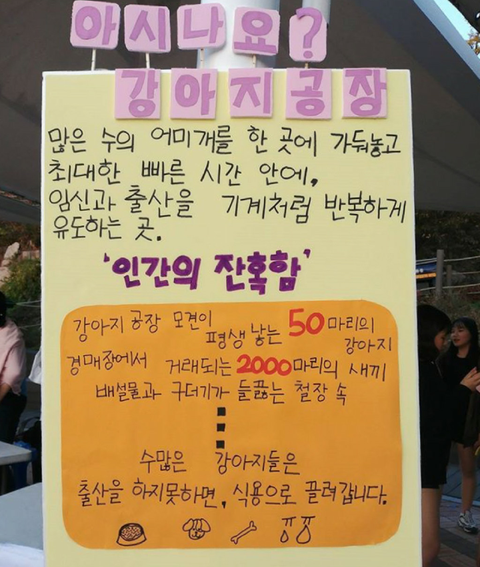 아시나요?
강아지공장
많은 수의 어미개를 한 곳에 가둬놓고
최대한 빠른 시간 안에,
임신과 출산을 기계처럼 반복하게
유도하는 곳.
'인간의 잔혹함'
강아지 공장 모견이 평생 낳는 50마리의 강아지
경매장에서 거래되는 2000마리의 새끼
배설물과 구더기가 들끓는 철장 속
수많은 강아지들은
출산을 하지못하면, 식용으로 끌려갑니다.